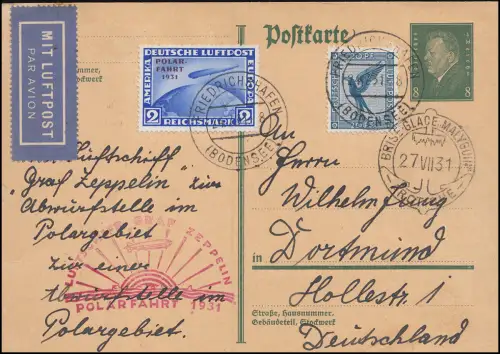 MIT LUFTPOST
PAR AVION
DEUTSCHE LUFTPOST
AMERIKA
EUROPA
POLAR-
FAHRT
1931
2 REICHSMARK 2
FRIEDRICHSHAFEN
(BODENSEE)
FRIEDRICHSHAFEN
(BODENSEE)
Postkarte
8 8
27 VII 31
Straße, Hausnummer,
Gebäudeteil, Stockwerk
Mit Luftschiff
"Graf Zeppelin" zur
Abwürfstelle im
Polargebiet
zur einer
Abwurfstelle im
Polargebiet.
LUFTSCHIFF GRAF ZEPPELIN
POLARFAHRT 1931
An
Herrn
Wilhelm Jung
in Dortmund
Hollestr. 1
Straße, Hausnummer,
Gebäudeteil, Stockwerk
Deutschland